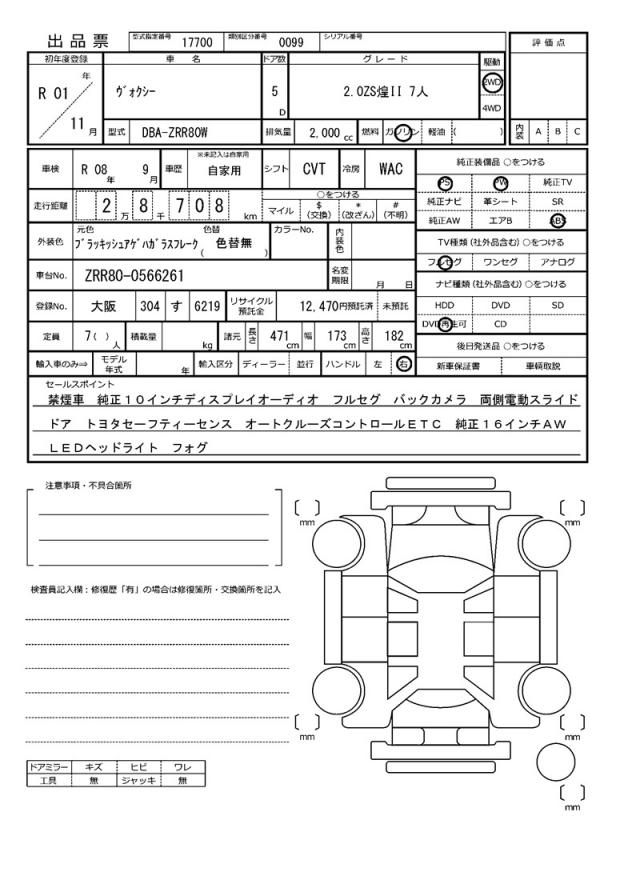 出品票 型式指定番号 17700 類別区分番号 0099 シリアル番号
評価点
初年度登録 車名 ドア数 グレード 駆動
R 01 年 11 月 ヴォクシー 5 D 2.0ZS煌II 7人 2WD 4WD
型式 DBA-ZRR80W 排気量 2,000 cc 燃料 ガソリン 軽油 ( ) 内装 A B C
車検 R 08 年 9 月 車歴 ※未記入は自家用 自家用 シフト CVT 冷房 WAC
純正装備品 ○をつける
PS PW 純正TV
走行距離 2 万 8 千 7 0 8 km ○をつける
マイル $(交換) *(改ざん) #(不明)
純正ナビ 革シート SR
純正AW エアB ABS
外装色 元色 ブラッキッシュアゲハガラスフレーク 色替 ( 色替無 ) カラーNo. 内装色
TV種類(社外品含む) ○をつける
フルセグ ワンセグ アナログ
車台No. ZRR80-0566261 名変期限 月 日
ナビ種類(社外品含む) ○をつける
登録No. 大阪 304 す 6219 リサイクル預託金 12,470円預託済 未預託
HDD DVD SD
DVD再生可 CD
定員 7( ) 人 積載量 kg 諸元 長さ 471 cm 幅 173 cm 高さ 182 cm
後日発送品 ○をつける
輸入車のみ⇒ モデル年式 年 輸入区分 ディーラー 並行 ハンドル 左 右
新車保証書 車輌取説
セールスポイント
禁煙車 純正10インチディスプレイオーディオ フルセグ バックカメラ 両側電動スライド
ドア トヨタセーフティーセンス オートクルーズコントロールETC 純正16インチAW
LEDヘッドライト フォグ
注意事項・不具合箇所
検査員記入欄：修復歴「有」の場合は修復箇所・交換箇所を記入
mm mm
mm mm
mm
ドアミラー キズ ヒビ ワレ
工具 無 ジャッキ 無